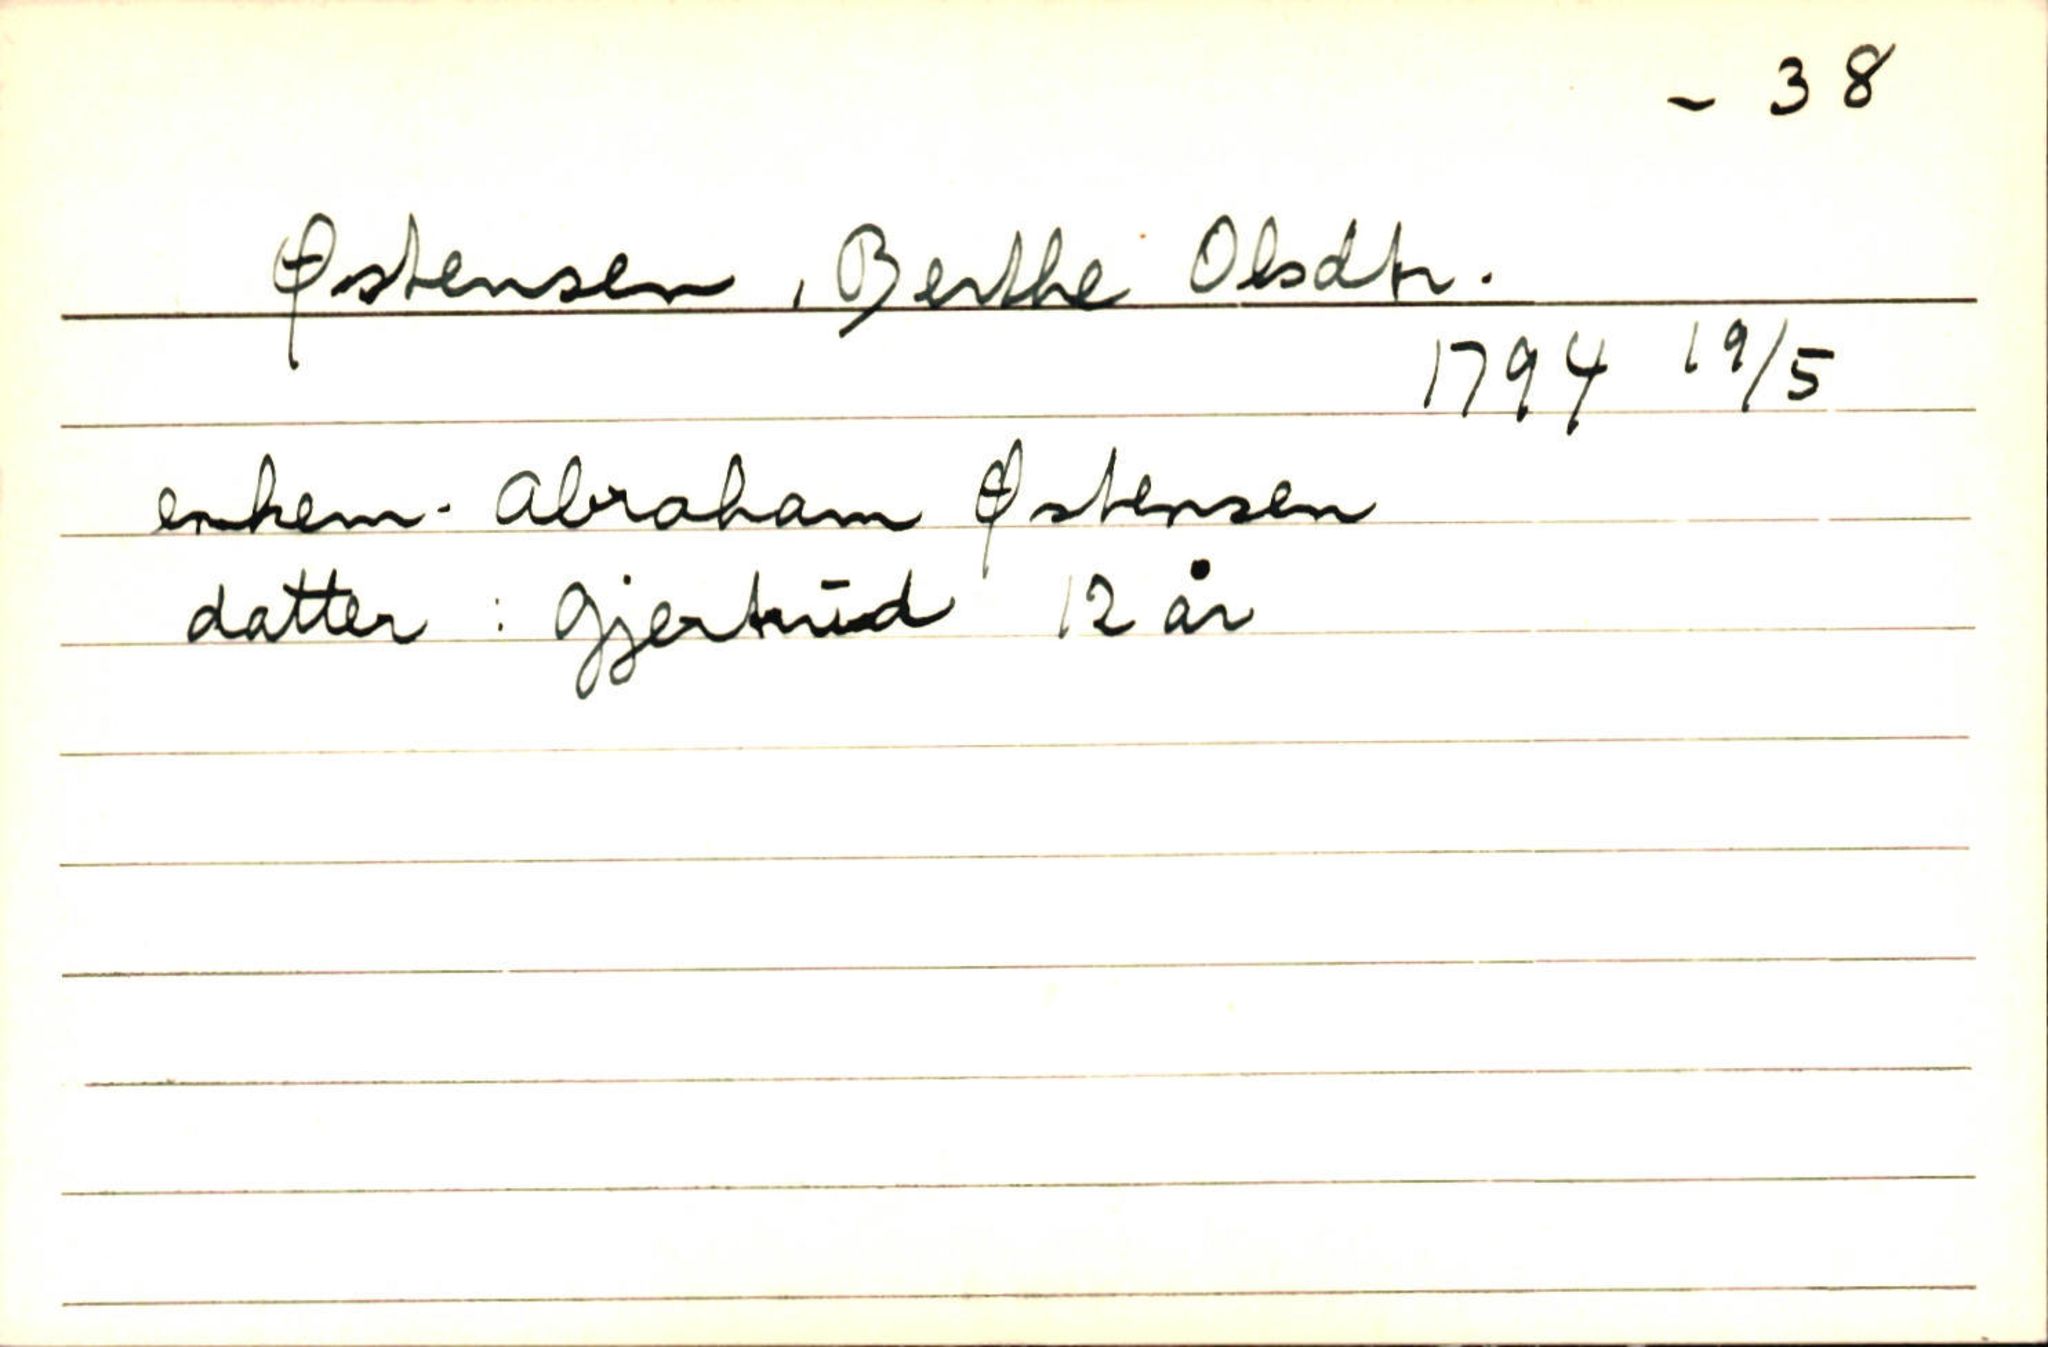 - 38
Østensen, Berthe Olsdtr.
1794 19/5
enkem. Abraham Østensen
datter : Gjertrud 12 år